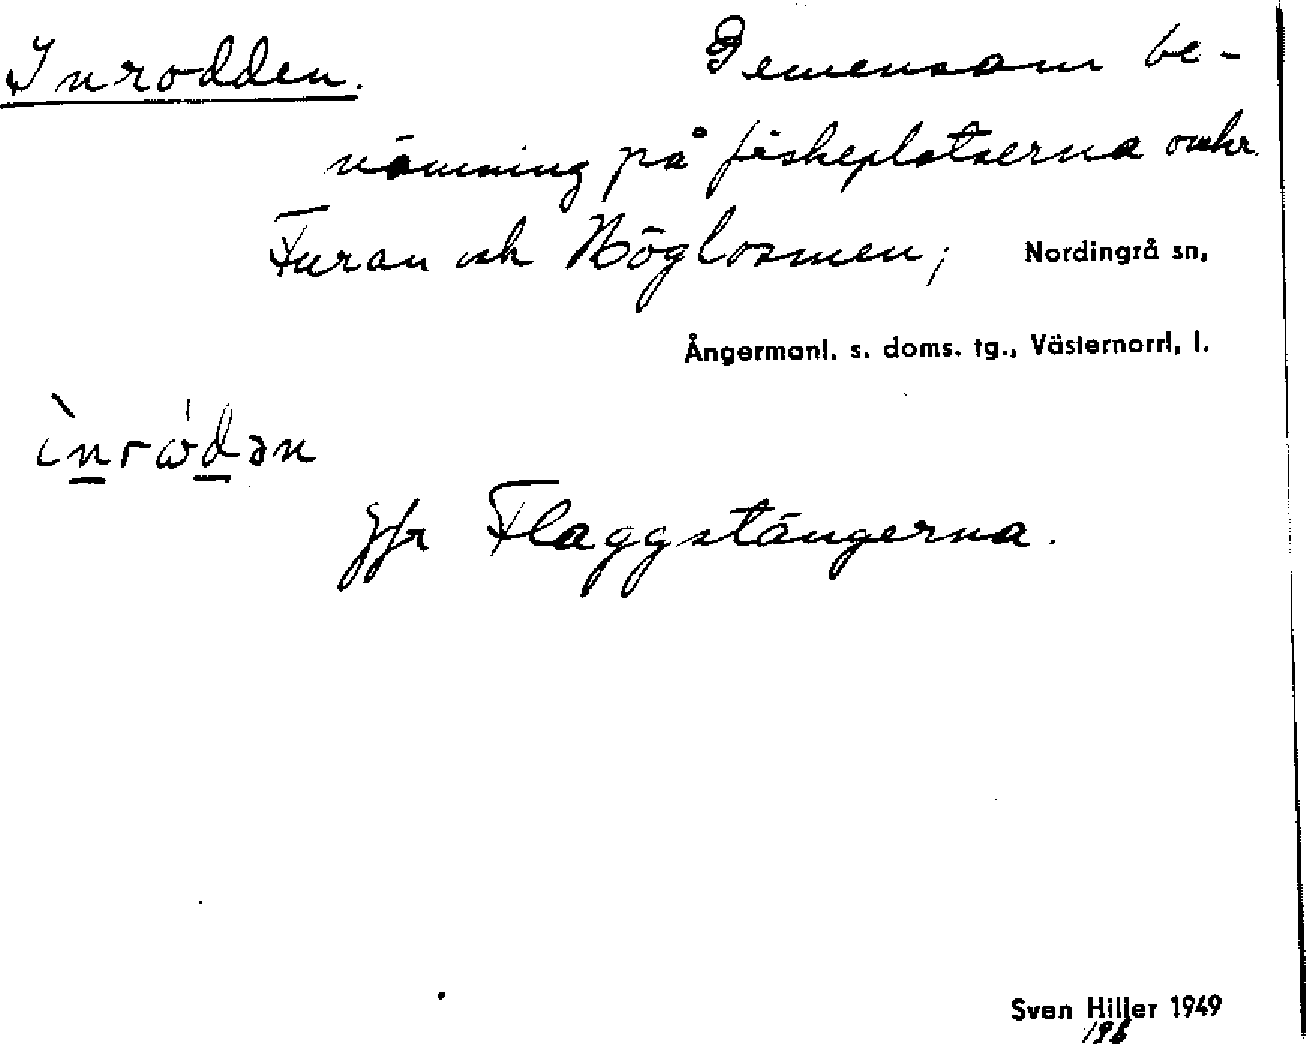 Inrodden. Gemensam be-
nämning på fiskeplatserna omkr.
Furan och Höglosmen; Nordingrå sn,
Ångermanl. s. doms. tg., Västernorrl, l.
ìnrωdən
Jfr Flaggstängerna.
Sven Hiller 1949
196